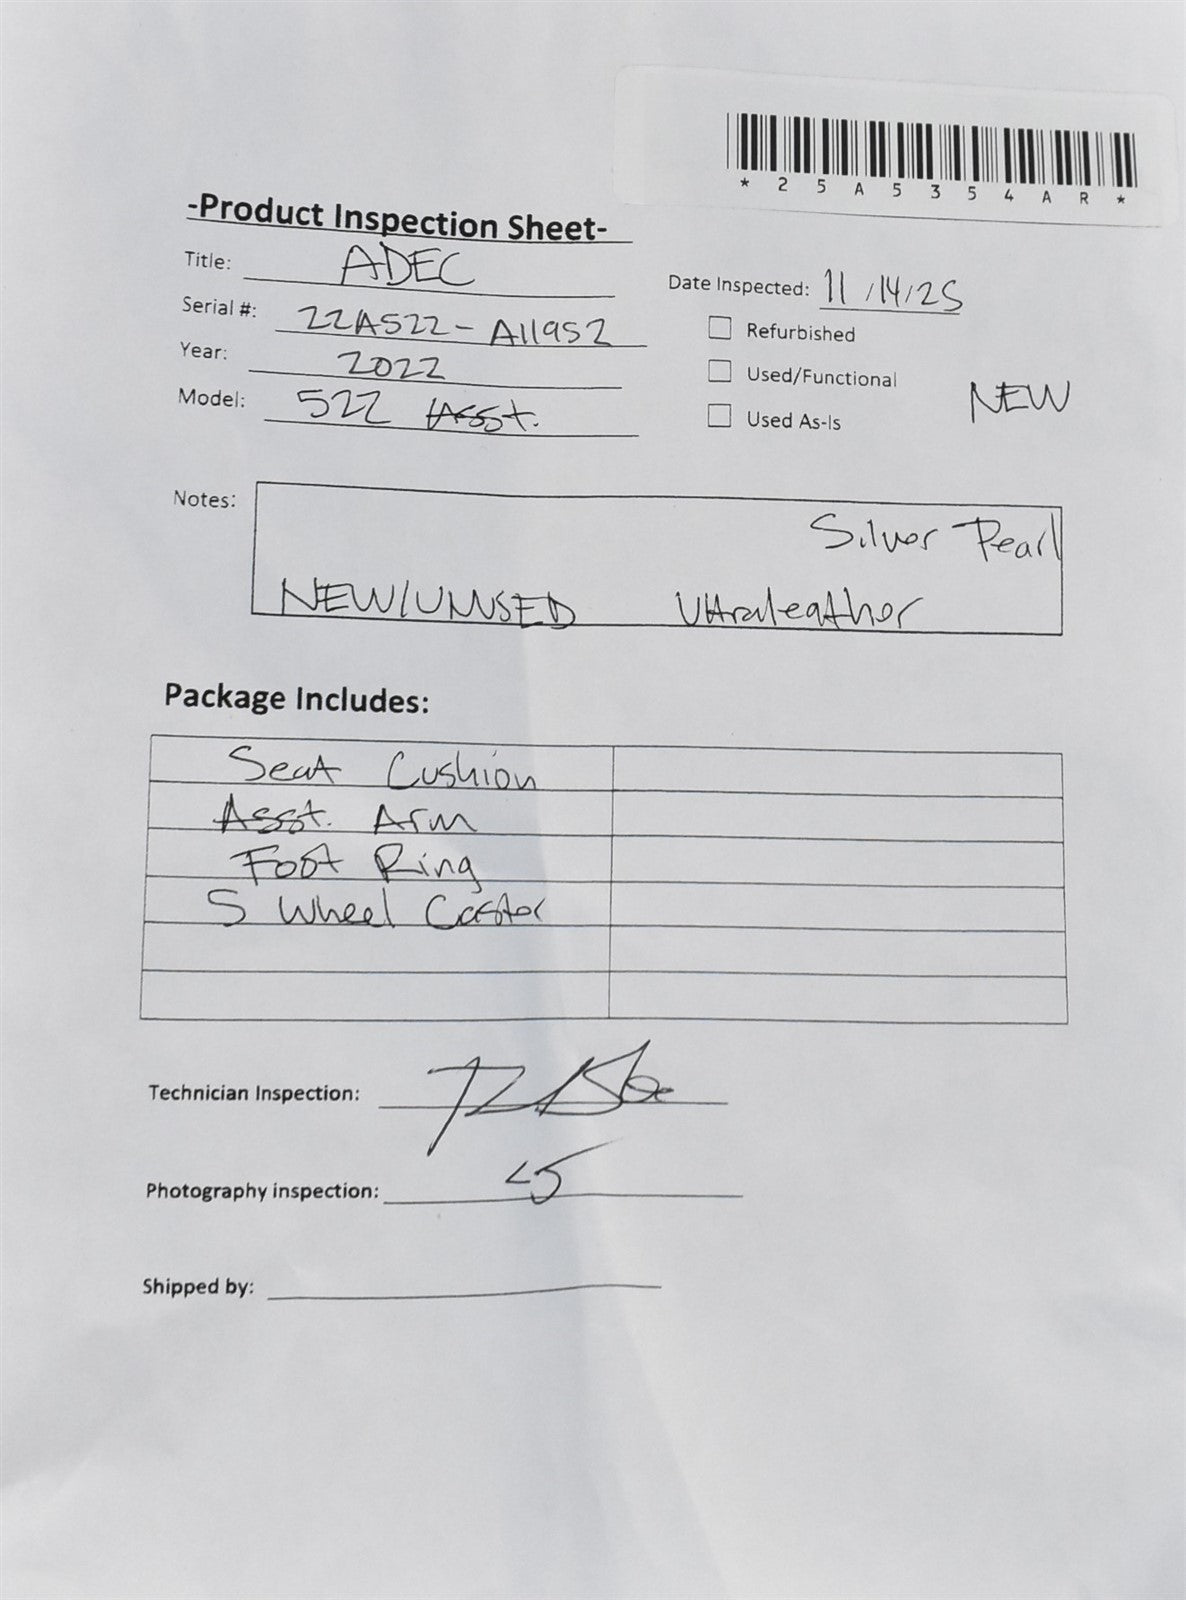 *25A5354AR*
-Product Inspection Sheet-
Title: ADEC
Date Inspected: 11/14/25
Serial #: 22A522-A11952
Refurbished
Year: 2022
Used/Functional
NEW
Model: 522 Asst.
Used As-Is
Notes:
Silver Pearl
NEW/UNUSED Ultraleather
Package Includes:
Seat Cushion
Asst. Arm
Foot Ring
5 Wheel Castor
Technician Inspection:
Photography inspection:
Shipped by: